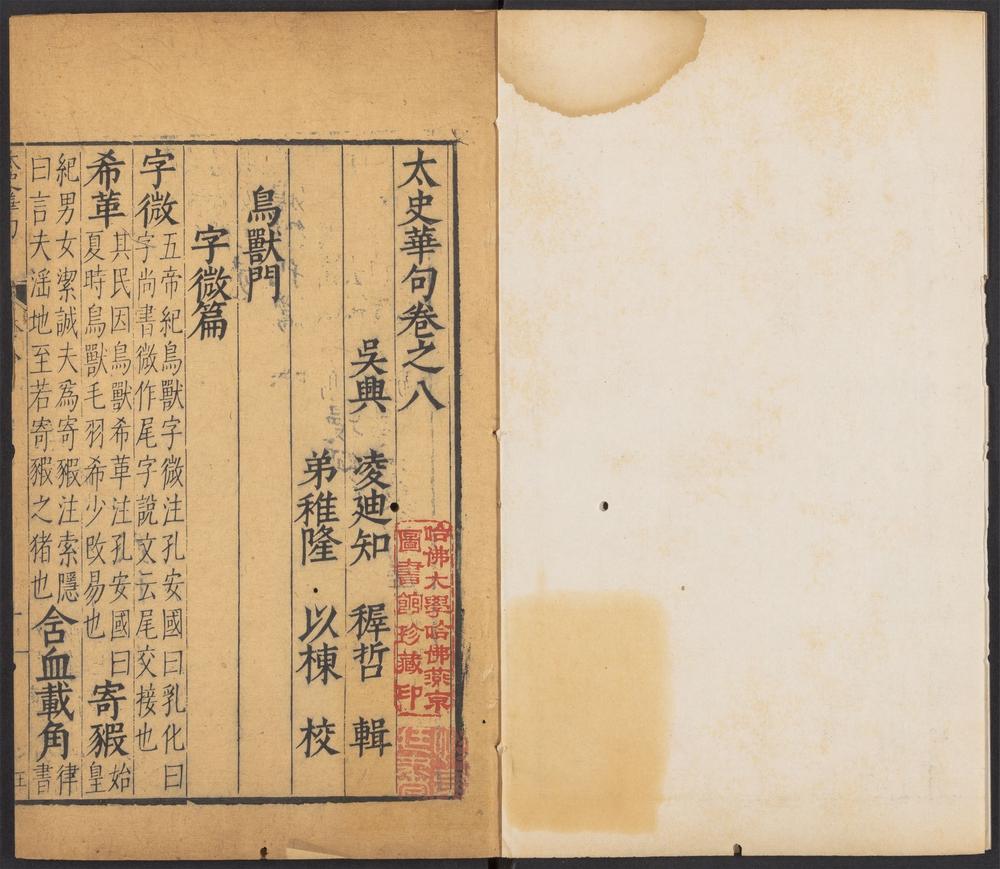 太史華句卷之八
吳興 凌迪知 穉哲 輯
弟稚隆 以棟 校
鳥獸門
字微篇
字微五帝紀鳥獸字微注孔安國曰乳化曰
字尚書微作尾字說文云尾交接也
希革其民因鳥獸希革注孔安國曰
夏時鳥獸毛羽希少改易也
寄豭始皇
紀男女潔誠夫爲寄豭注索隱
曰言夫淫地至若寄豭之猪也
含血載角律書
哈佛大學哈佛燕京
圖書館珍藏印